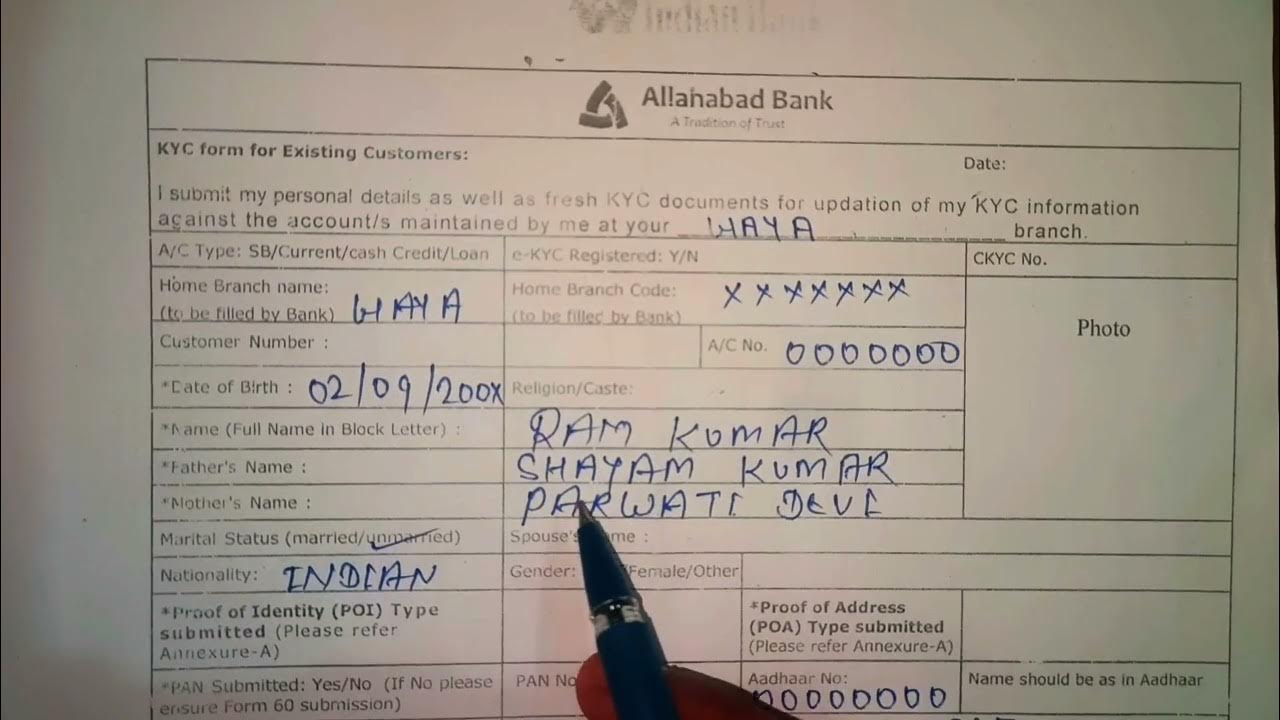 Indian Bank
Allahabad Bank
A Tradition of Trust
KYC form for Existing Customers:
Date:
I submit my personal details as well as fresh KYC documents for updation of my KYC information
against the account/s maintained by me at your HAYA branch.
A/C Type: SB/Current/cash Credit/Loan e-KYC Registered: Y/N CKYC No.
Home Branch name: HAYA Home Branch Code: XXXXXXX
(to be filled by Bank) (to be filled by Bank)
Photo
Customer Number : A/C No. 0000000
*Date of Birth : 02/09/200X Religion/Caste:
*Name (Full Name in Block Letter) : RAM KUMAR
*Father's Name : SHAYAM KUMAR
*Mother's Name : PARWATI DEVI
Marital Status (married/unmarried) Spouse's :
Nationality: INDIAN Gender: /Female/Other
*Proof of Identity (POI) Type
submitted (Please refer
Annexure-A)
*Proof of Address
(POA) Type submitted
(Please refer Annexure-A)
*PAN Submitted: Yes/No (If No please
ensure Form 60 submission)
PAN No
Aadhaar No:
00000000
Name should be as in Aadhaar